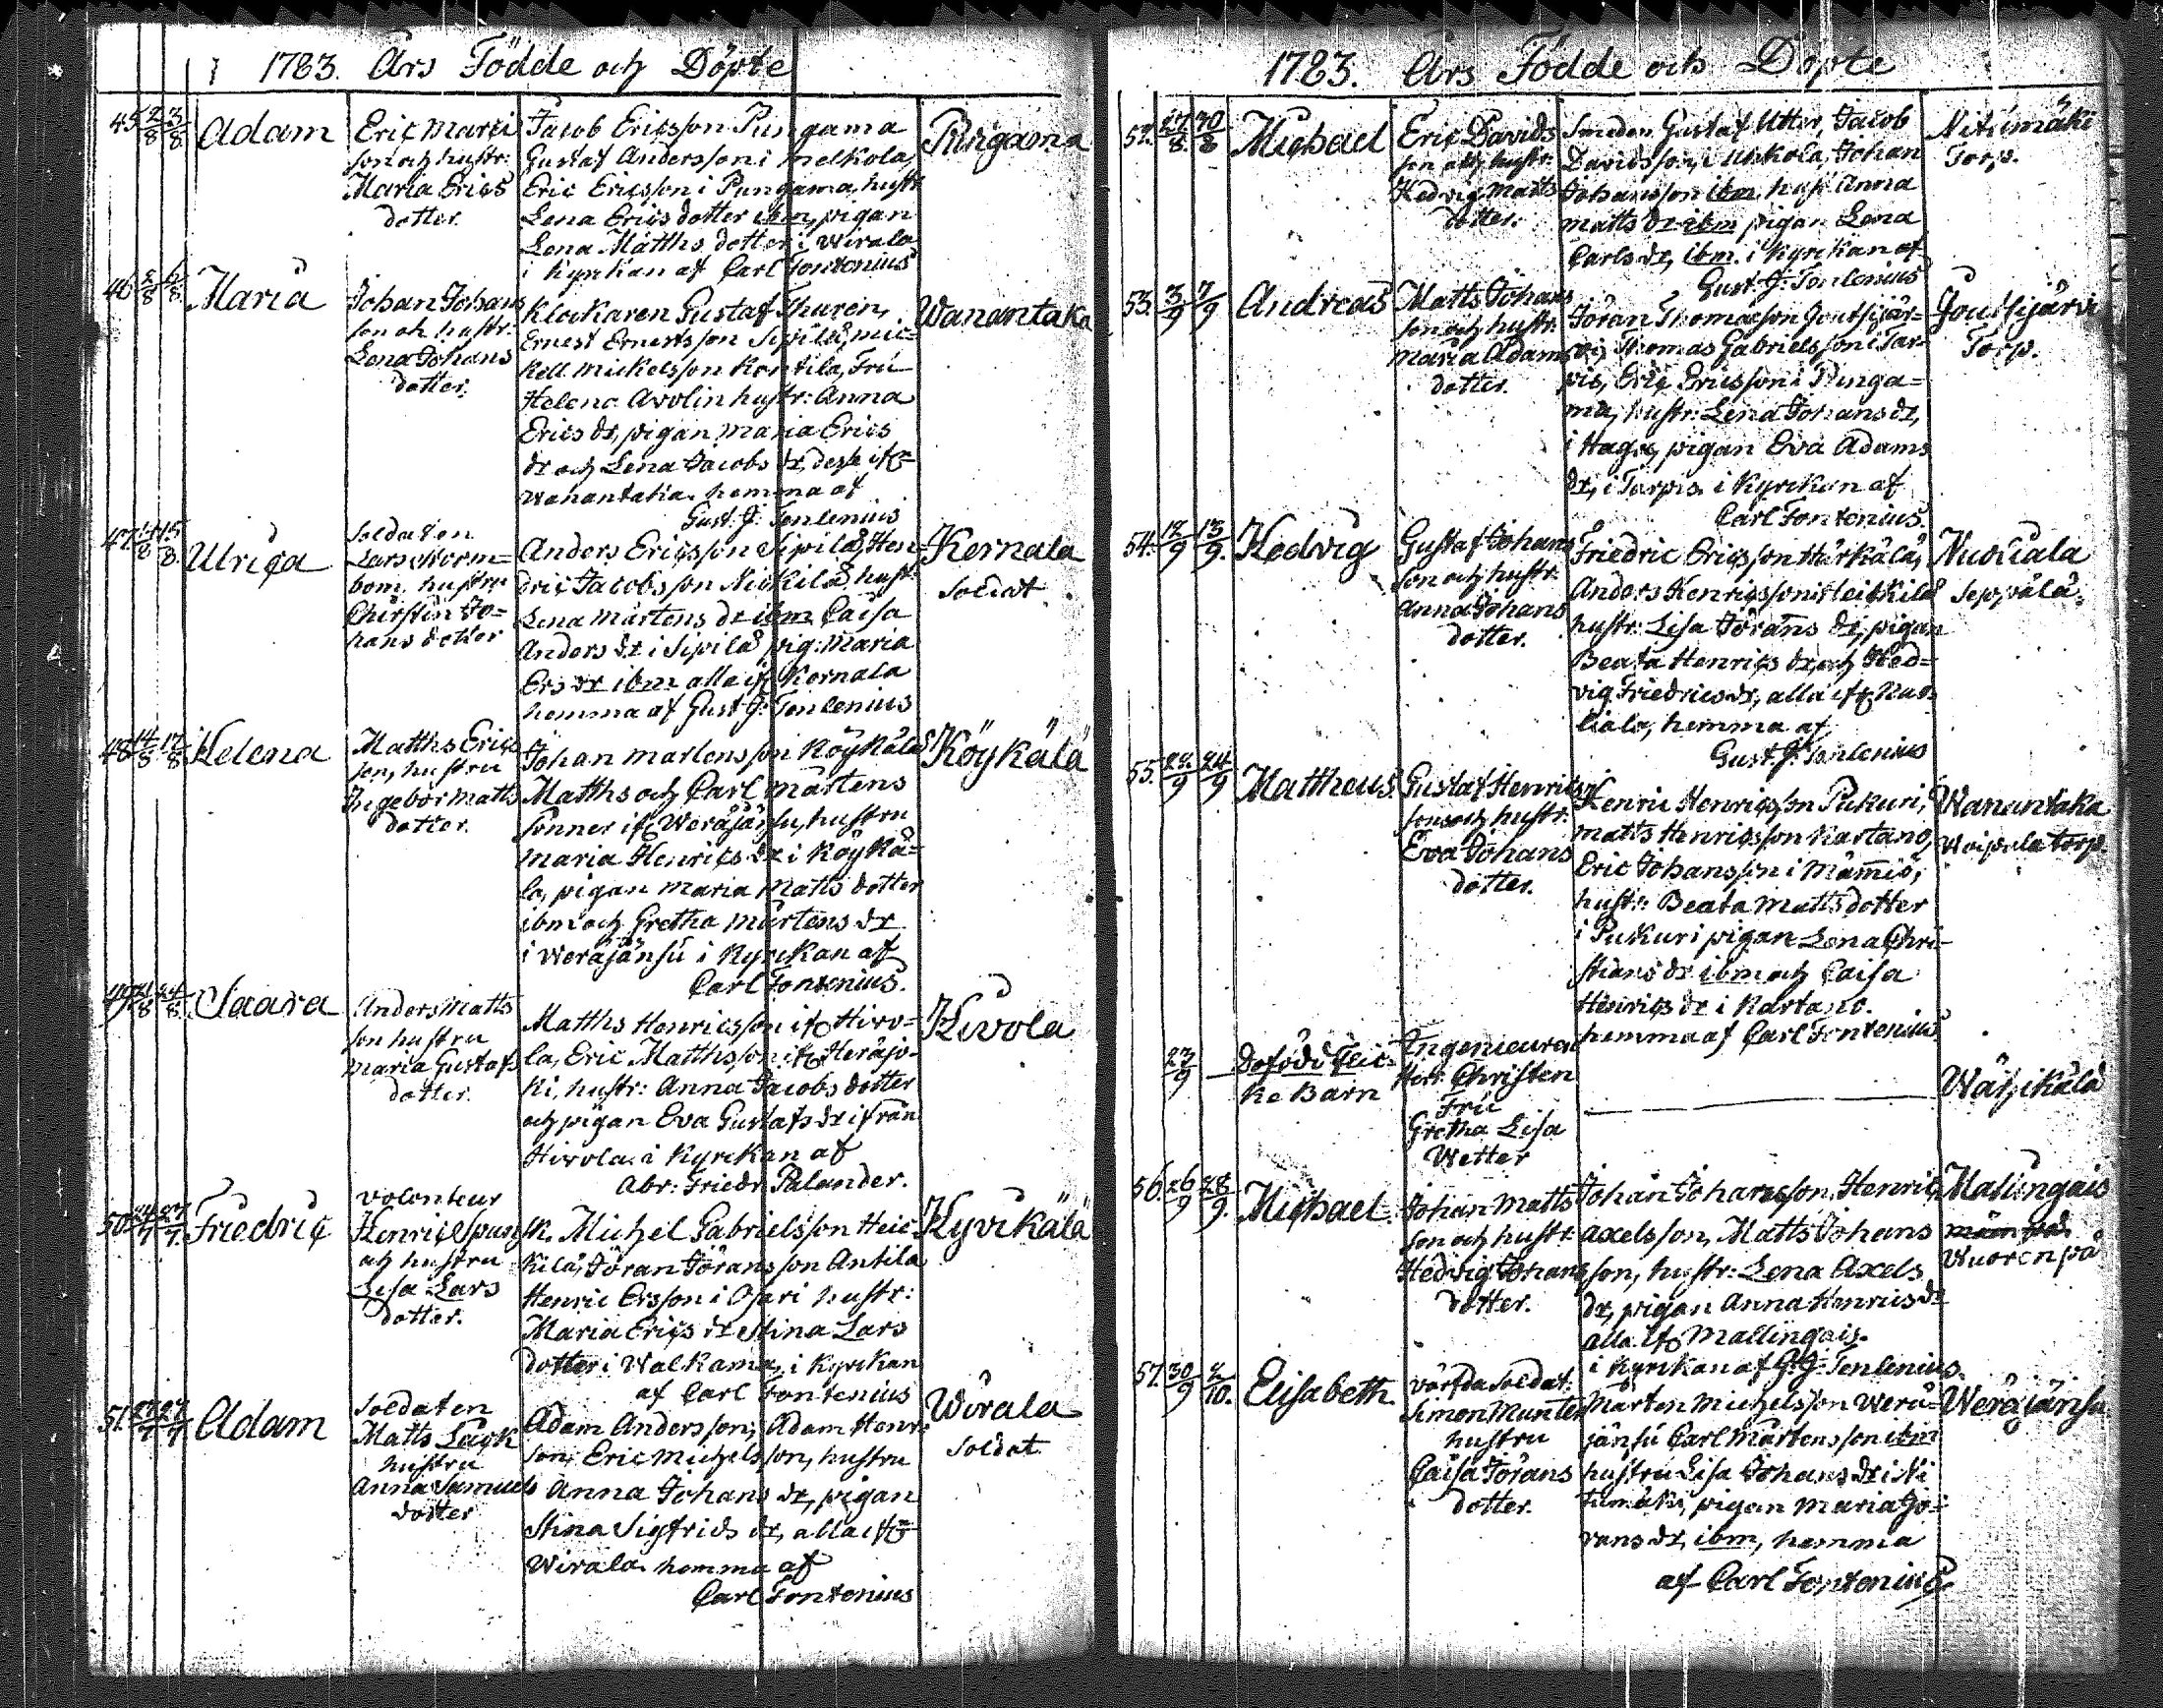 1783. Års Födde och Döpte
45 2/8 3/8 Adam
Eric Marci
son och hustr:
Maria Erics
dotter.
Jacob Ericsson Pungama
Gustaf Andersson i Melkola,
Eric Ericsson i Pungama, hustr
Lena Erics dotter ibm, pigan
Lena Matths dotter i Wirala
i Kyrckan af Carl Fontenius
Pungama
46 2/8 6/8 Maria
Johan Johans
son och hustr:
Lena Johans
dotter.
Klockaren Gustaf Thuren,
Ernest Ernestsson Sipilä, Mic=
kell Mickelsson Kontila, Fru
Helena Avolin hustr: Anna
Erics dr, pigan Maria Erics
dr och Lena Jacobs dr, desse ifr
Wanantaka. hemma af
Gust. J: Tenlenius
Wanantaka
47. 14/8 15/8. Ulrica
Soldaten
Lars Worm=
bom, hustru
Chirstin Jo=
hans dotter
Anders Ericsson Sipilä, Hen=
dric Jacobsson Nickilä hustr:
Lena Mårtens dr ibm Caisa
Anders dr i Sipilä, pig: Maria
Ers dr ibm alla if Kernala
hemma af Gust. J: Tenlenius
Kernala
Soldat
48 14/8 17/8 Helena
Matths Erics
son, hustru
Ingebor Matts
dotter.
Johan Martensson Köykälä
Matths och Carl Mårtens
Sönner ifr Weräjänsu, hustru
Maria Henrics dr i Köykä=
lä, pigan Maria Matts dotter
ibm och Gretha Mårtens dr
i Weräjänsu i Kyrckan af
Carl Fontenius.
Köykälä
49 21/8 24/8. Saara
Anders Matts
son hustru
Maria Gustafs
dotter.
Matths Henricsson ifr Hirvo=
la, Eric Matthsson ifr Heräjo=
ki, hustr: Anna Jacobs dotter
och pigan Eva Gustafs dr ifrån
Hirvola. i Kyrckan af
Abr: Friedr Palander.
Kivola
50. 24/7 27/7. Friedric
Volonteur
Henric Spung
och hustru
Lisa Lars
dotter.
Michel Gabrielsson Heic=
kilä, Jöran Jöransson Antila
Henric Ersson i Ojari hustr:
Maria Erics dr Stina Lars
dotter i Walkama, i Kyrckan
af Carl Fontenius
Kyvikälä
51. 27/7 27/7 Adam
Soldaten
Matts Lack
hustru
Anna Samuels
dotter
Adam Andersson, Adam Henr=
son, Eric Michelsson, hustru
Anna Johans dr, pigan
Stina Sigfrids dr, alla ifr
Wirala. hemma af
Carl Fontenius
Wirala
Soldat
1783. Års Födde och Döpte
52. 27/8 30/8 Michael
Eric Davids
son och hustr:
Hedvig Matts
dotter.
Smeden Gustaf Utter, Jacob
Davidsson, i Uskola, Johan
Johansson ibm hust. Anna
Matts dr ibm pigan Lena
Carls dr, ibm. i Kyrckan af
Gust. J: Tenlenius
Nitumäki
Torp.
53. 3/9 7/9 Andreas
Matts Johans
son och hustr:
Maria Adams
dotter.
Jöran Thomasson Joutsijär=
vi, Thomas Gabrielsson i Tar=
pis, Eric Ericsson i Punga=
ma, hustr: Lena Johans dr,
i Haga, pigan Eva Adams
dr, i Tarpis. i Kyrckan af
Carl Fontenius.
Joutsijärvi
Torp.
54. 12/9 13/9. Hedvig
Gustaf Johans
son och hustr:
Anna Johans
dotter.
Friedric Ericsson Härkälä,
Anders Henricsson Heickilä
hustr: Lisa Jörans dr, pigan
Beata Henrics dr, och Hed=
vig Friedrics dr, alla ifr Nus=
liala, hemma af
Gust. J: Tenlenius
Nusliala
Seppälä.
55. 22/9 24/9 Mattheus.
Gustaf Henrics
son och hustr:
Eva Johans
dotter.
Henric Henricsson Pukuri,
Matts Henricsson Kartano,
Eric Johansson i Mammiö,
hustr: Beata Matts dotter
i Pukuri pigan Lena Chri=
stians dr ibm och Caisa
Henrics dr i Kartano.
hemma af Carl Fontenius
Wanantaka
Woipala torp.
23/9 Dofödt flic=
ke Barn
Ingenieuren
Herr Christen
Fru
Gretha Lisa
Wetter
Wähikälä
56. 26/9 28/9. Michael.
Johan Matts
son och hustr:
Hedvig Johans
dotter.
Johan Johansson, Henric
Axelsson, Matts Johans
son, hustr: Lena Axels
dr, pigan Anna Henrics dr
alla ifr Mallingais.
i Kyrckan af G: J: Tenlenius.
Malingais
Wuorenpä
57. 30/9 2/10. Elisabeth
värfda Soldat.
Simon Munter
hustru
Caisa Jörans
dotter.
Mårten Michelsson Werä=
jänsu Carl Mårtensson ibm
hustru Lisa Johans dr i Ni
tumäki, pigan Maria Jö=
rans dr, ibm, hemma
af Carl Fontenius.
Weräjänsu